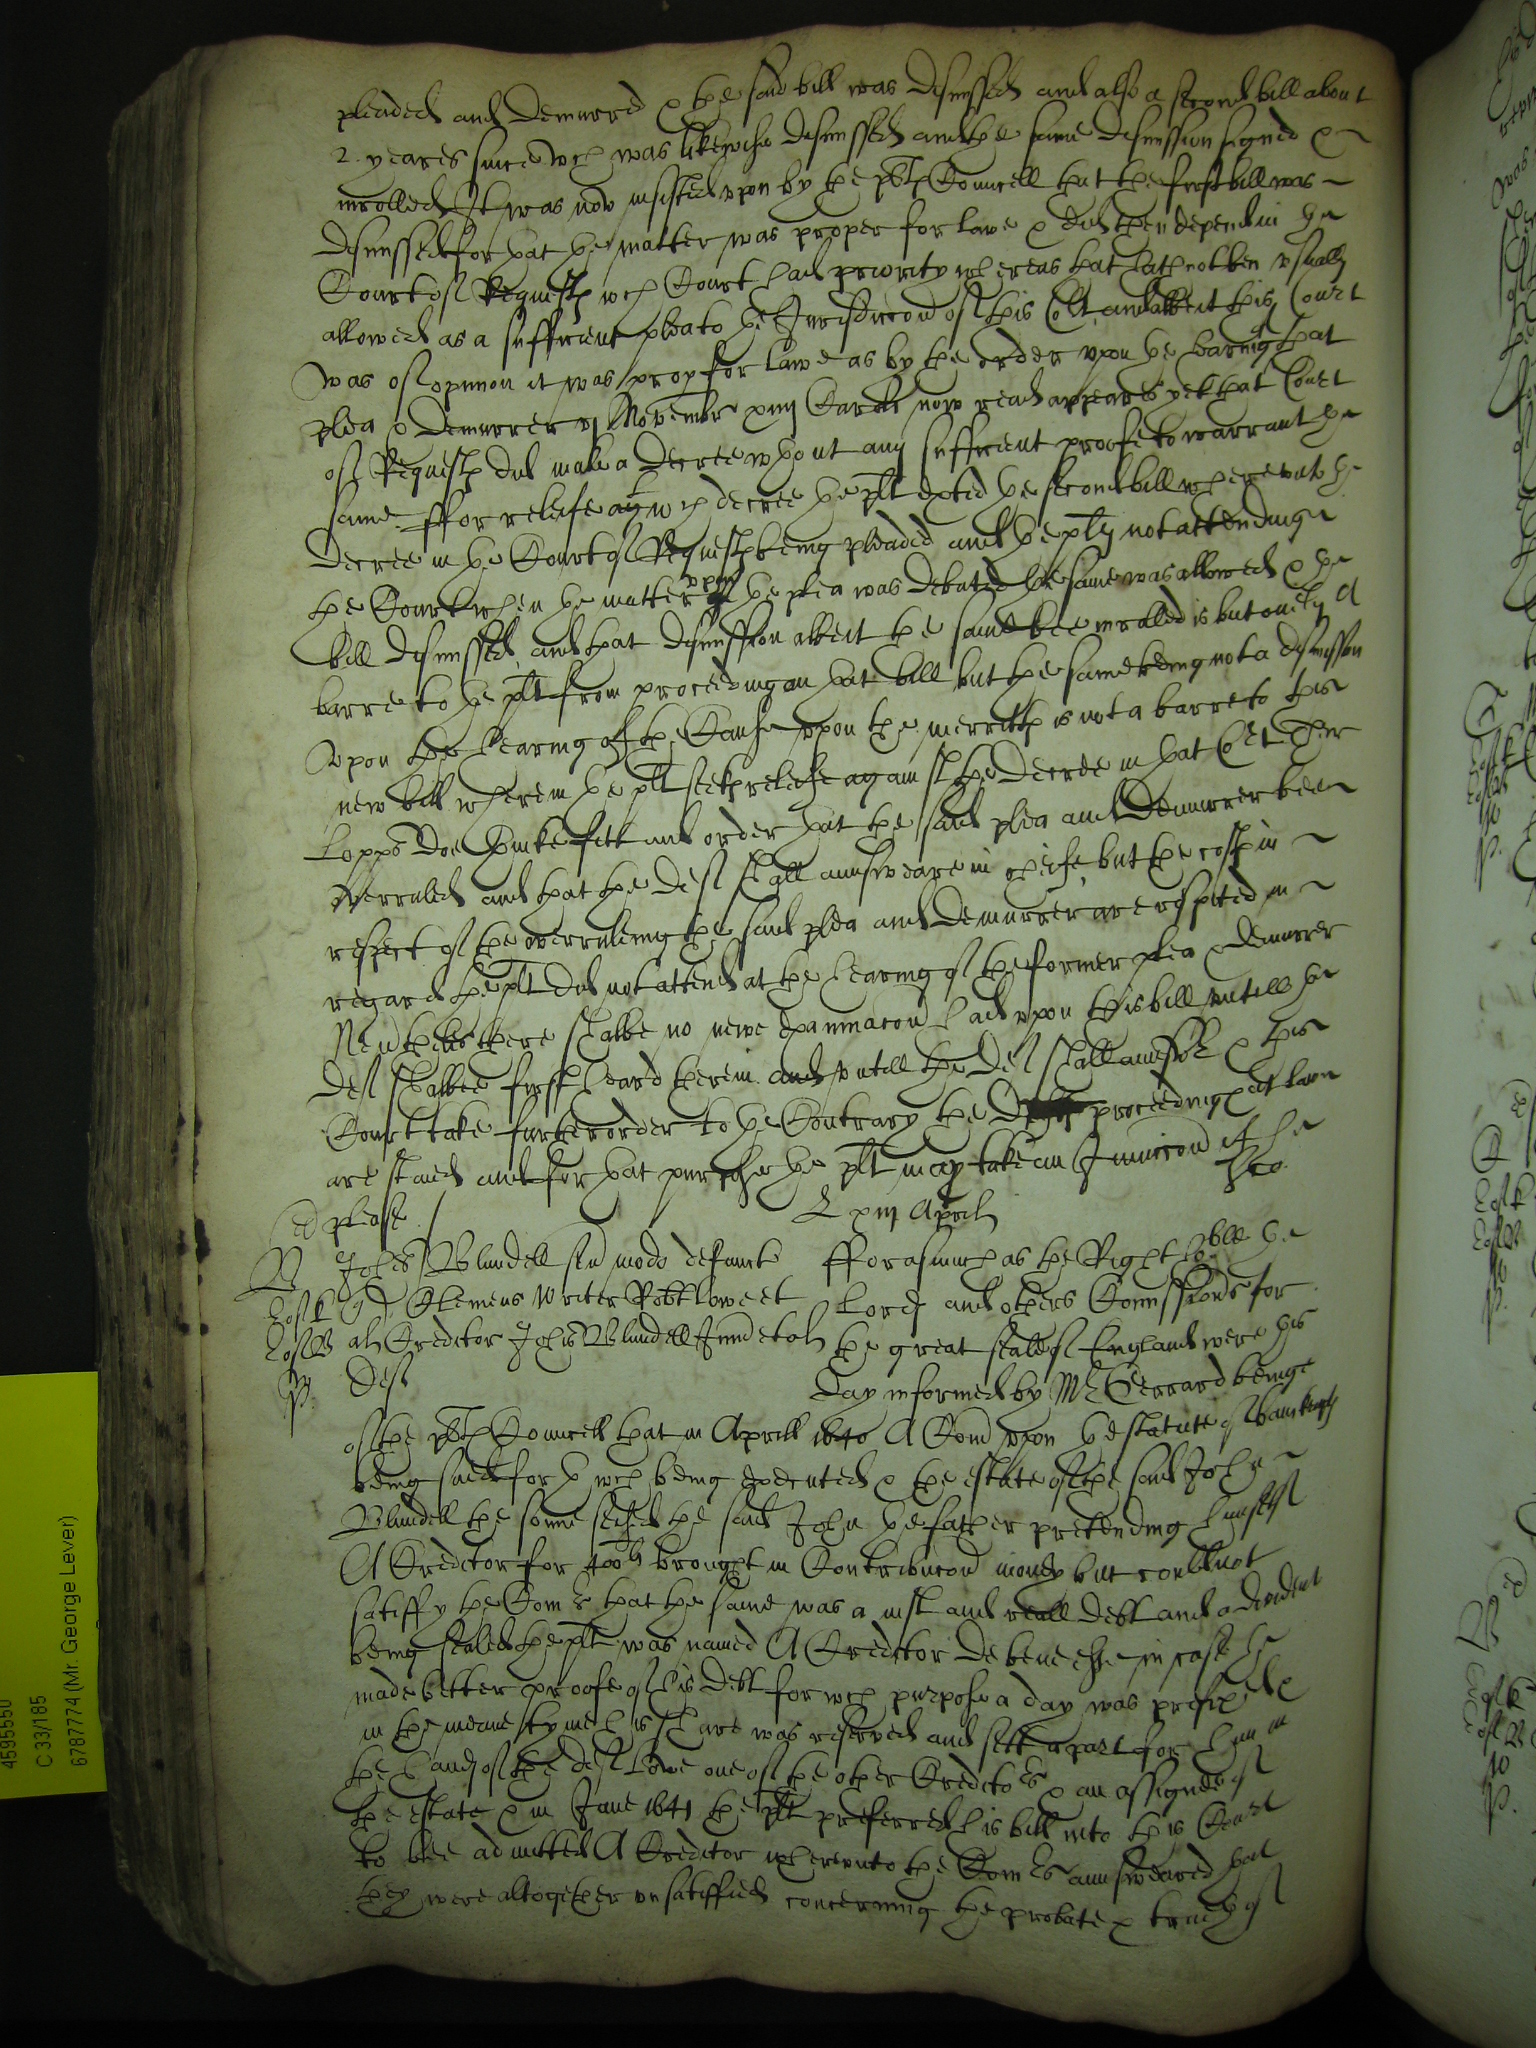 pleaded and demurred & the said bill was dismissed and also a second bill about
2. yeares since wch was likewise dismissed and the same dismission signed &
inrolled It was now insisted upon by the plts Councell that the first bill was
dismissed for that the matter was proper for lawe & did then depend in the
Court of Requests wch Court had priority whereas that hath not ben usually
allowed as a sufficient plea to the Jurisdiccon of this Cort and albeit this Court
was of opinion it was proper for lawe as by the order upon the hearing that
plea & demurrer vj Novembr xiiij Caroli now read appeares yet that Court
of Requests did make a decree wthout any sufficient proofe to warrant the
same. ffor releife agt wch decree the plt exhted the second bill whereunto the
decree in the Court of Requests being pleaded and the plts not attending
the Court when the matter upon the plea was debated the same was allowed & the
bill dismissed, and that dismission albeit the same bee inrolled is but onely A
barre to the plt from proceeding on that bill but the same being not a dismission
upon the hearing of the Cause upon the merritts is not a barre to this
new bill wherein the plt seekes releife against the decree in that Cort Their
Lopps doe thinke fitt and order that the said plea and demurrer bee
Overruled and that the deft shall aunsweare in cheife, but the costs in
respect of the overruleing the said plea and demurrer are respited in
regard the plt did not attend at the hearing of the former plea & demurrer
Neutheles there shalbe no newe examinacon had upon this bill untill the
deft shalbee first heard therein and untill the deft shall answer & this
Court take further order to the Contrary the defts proceedings at lawe
are staied and for that purpose the plt may take an Iniuccon if he
please
xiij April
Johes Blundell sen modo defunct
Clemens Writer Robt Lowe et
al Creditor Johis Blundell Jun et al
Deft
fforasmuch as the Right hoble the
Lords and others Comissionrs for
the great seale of England were this
day informed by Mr Gerrard beinge
of the plts Councell that in Aprill 1640 A Comn upon the statute of bankrupts
being sued forth wch being executed & the estate of the said John
Blundell the sonne seised the said John the father pretending himself
A Creditor for 400li brought in Contribucon money but could not
satisfy the Comrs that the same was a iust and reall debt and a divident
being sealed the plt was named A Creditor de bene esse in case he
made better proofe of his debt for wch purpose a day was prefixed &
in the meane tyme his share was reserved and sett apart for him in
the hands of the deft Lowe one of the other Creditors & an assignee of
the estate & in June 1641 the plt preferred his bill into this Court
to bee admitted A Creditor whereunto the Comrs aunsweared that
they were altogether unsatisfied concerning the probate & truth of
4595550
C 33/185
67877774 (Mr. George Lever)